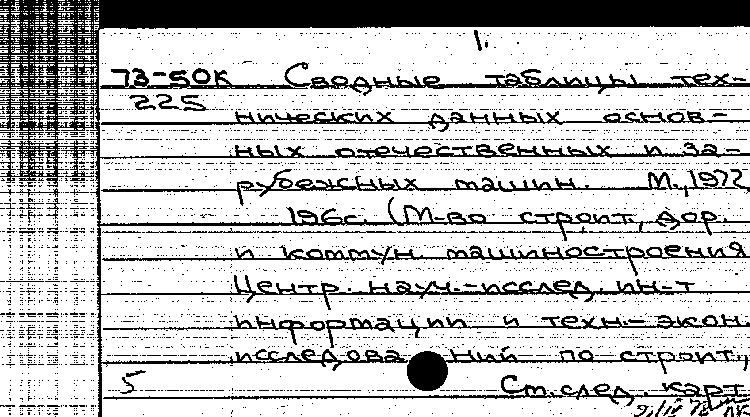 1.
73-50К Сводные таблицы тех-
225
нических данных основ-
ных отечественных и за-
рубежных машин. М., 1972
196с. (М-во строит., дор.
и коммун. машиностроения
Центр. науч.-исслед. ин-т
информации и техн.-экон.
исследований по строит.,
5 См. след. карт